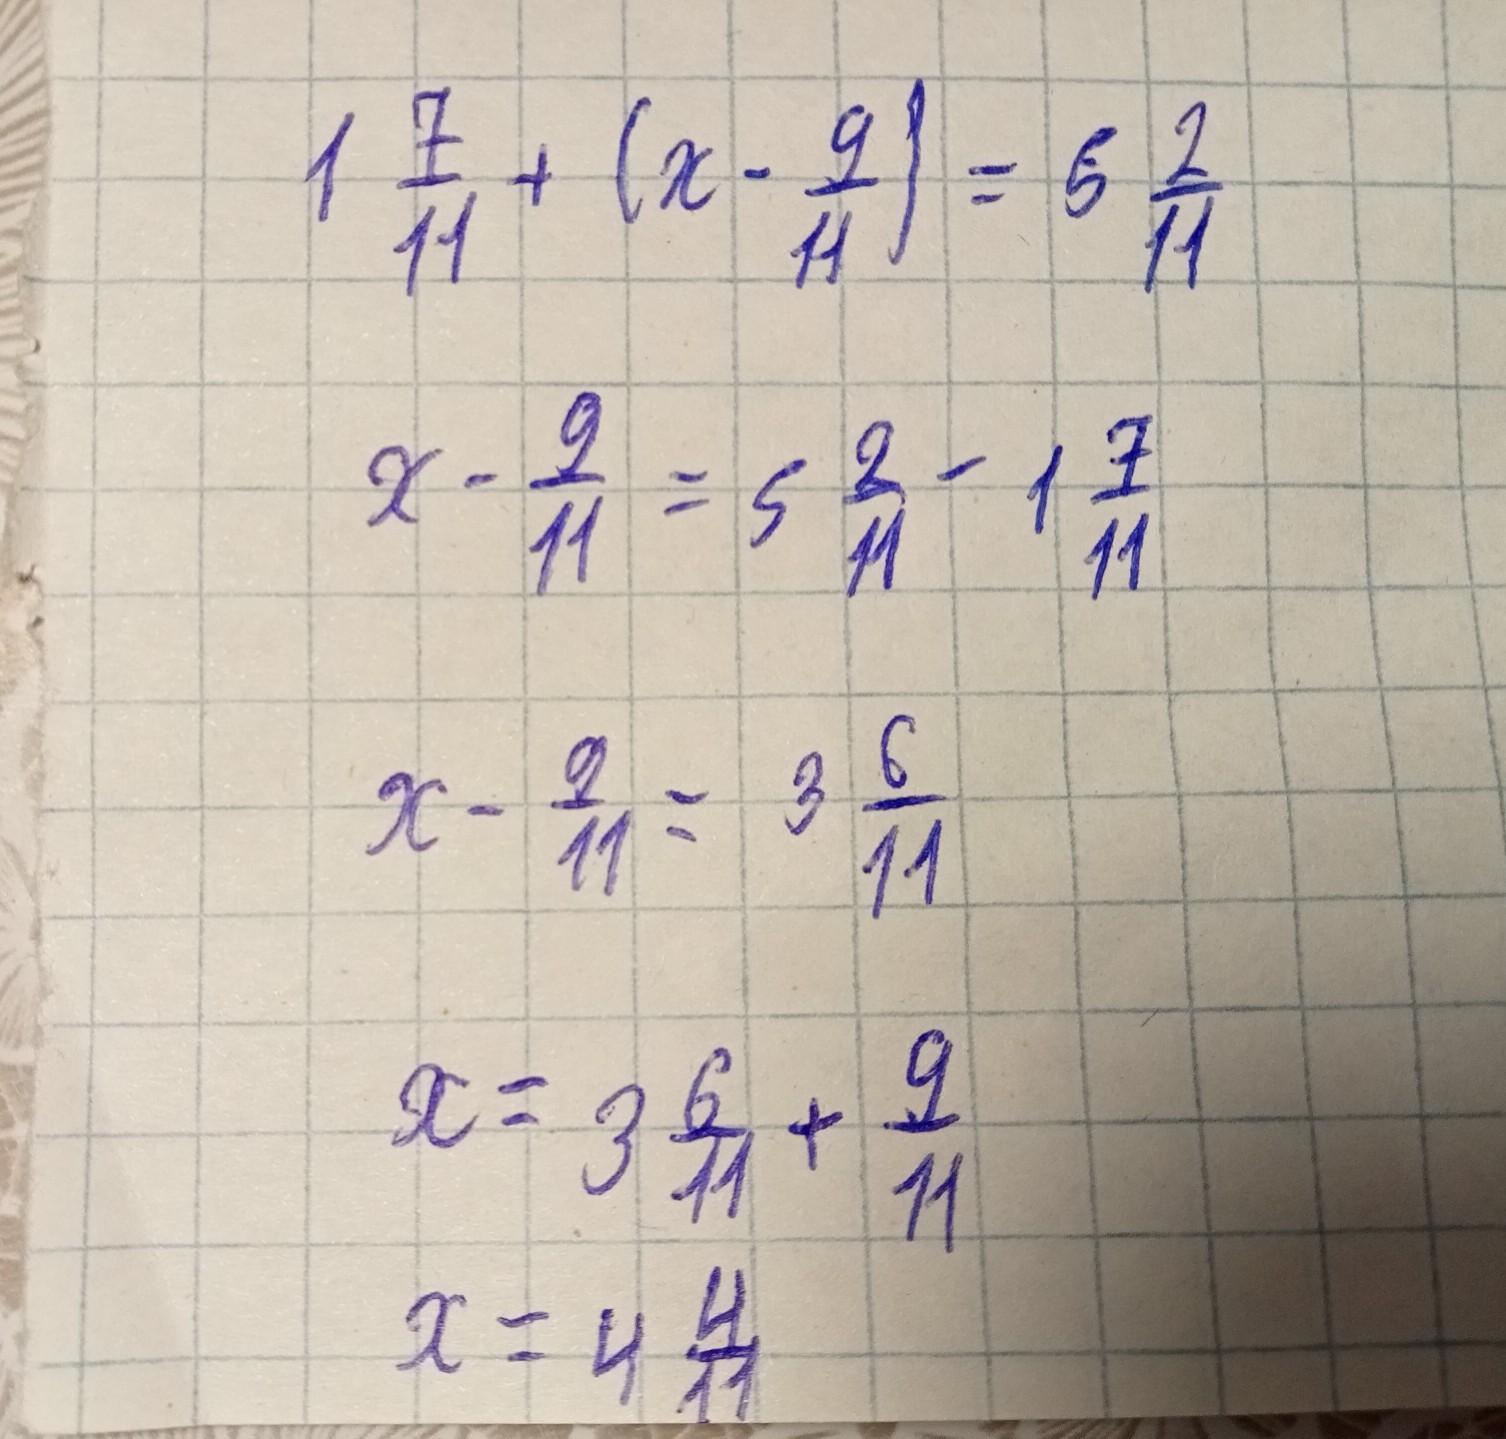 1 7/11 + (x - 9/11) = 5 2/11
x - 9/11 = 5 2/11 - 1 7/11
x - 9/11 = 3 6/11
x = 3 6/11 + 9/11
x = 4 4/11